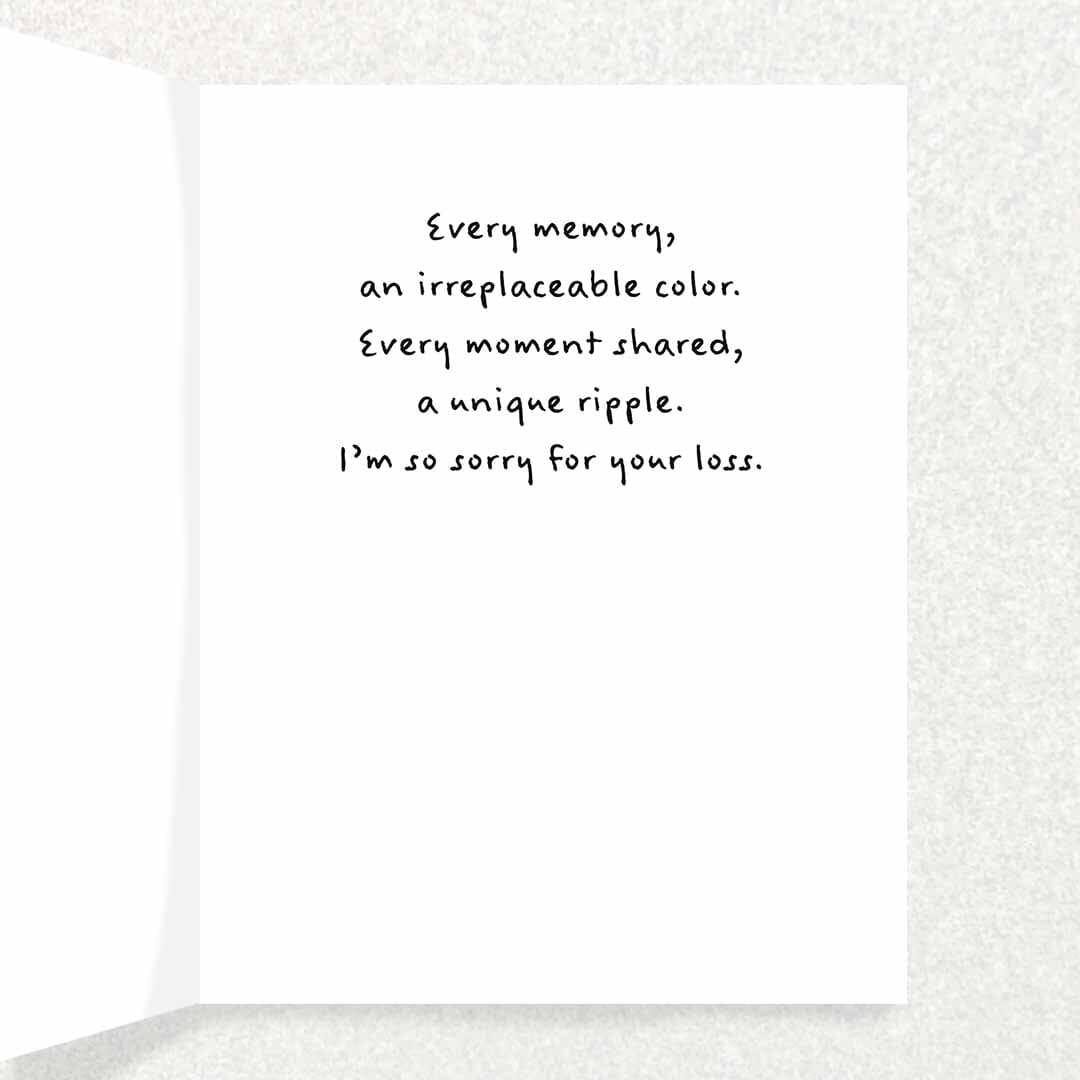 Every memory,
an irreplaceable color.
Every moment shared,
a unique ripple.
I'm so sorry for your loss.